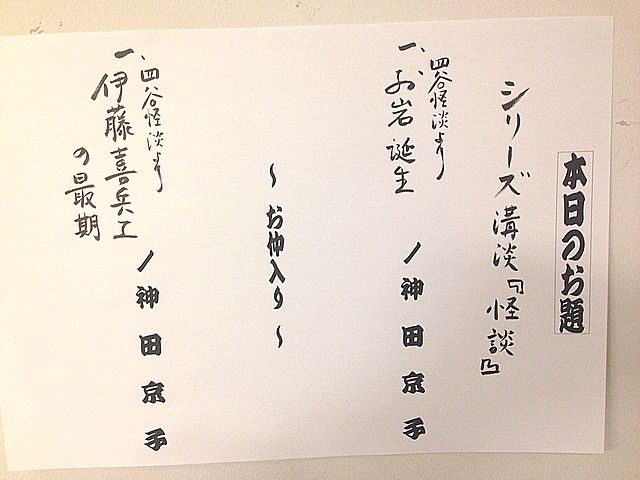 本日のお題
シリーズ 講淡『怪談』
一、四谷怪淡より
お岩誕生
／神田京子
〜お仲入り〜
一、四谷怪淡より
伊藤喜兵エ
の最期
／神田京子